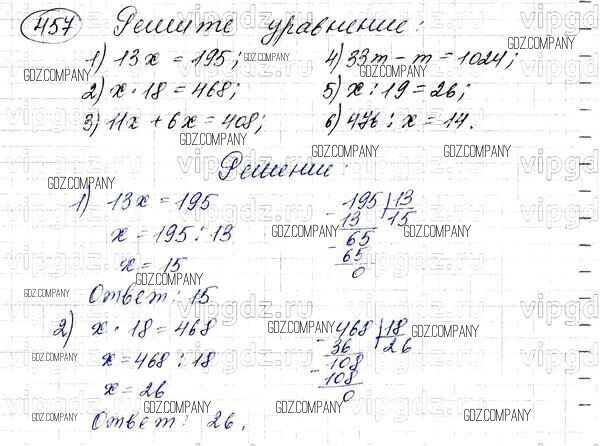 457 Решите уравнение:
1) 13x = 195; 4) 33m - m = 1024;
2) x · 18 = 468; 5) x : 19 = 26;
3) 11x + 6x = 408; 6) 476 : x = 14.
Решение:
1) 13x = 195
x = 195 : 13
x = 15
195 | 13
13 15
65
65
0
Ответ: 15
2) x · 18 = 468
x = 468 : 18
x = 26
468 | 18
36 26
108
108
0
Ответ: 26.
GDZ.COMPANY
vipgdz.ru